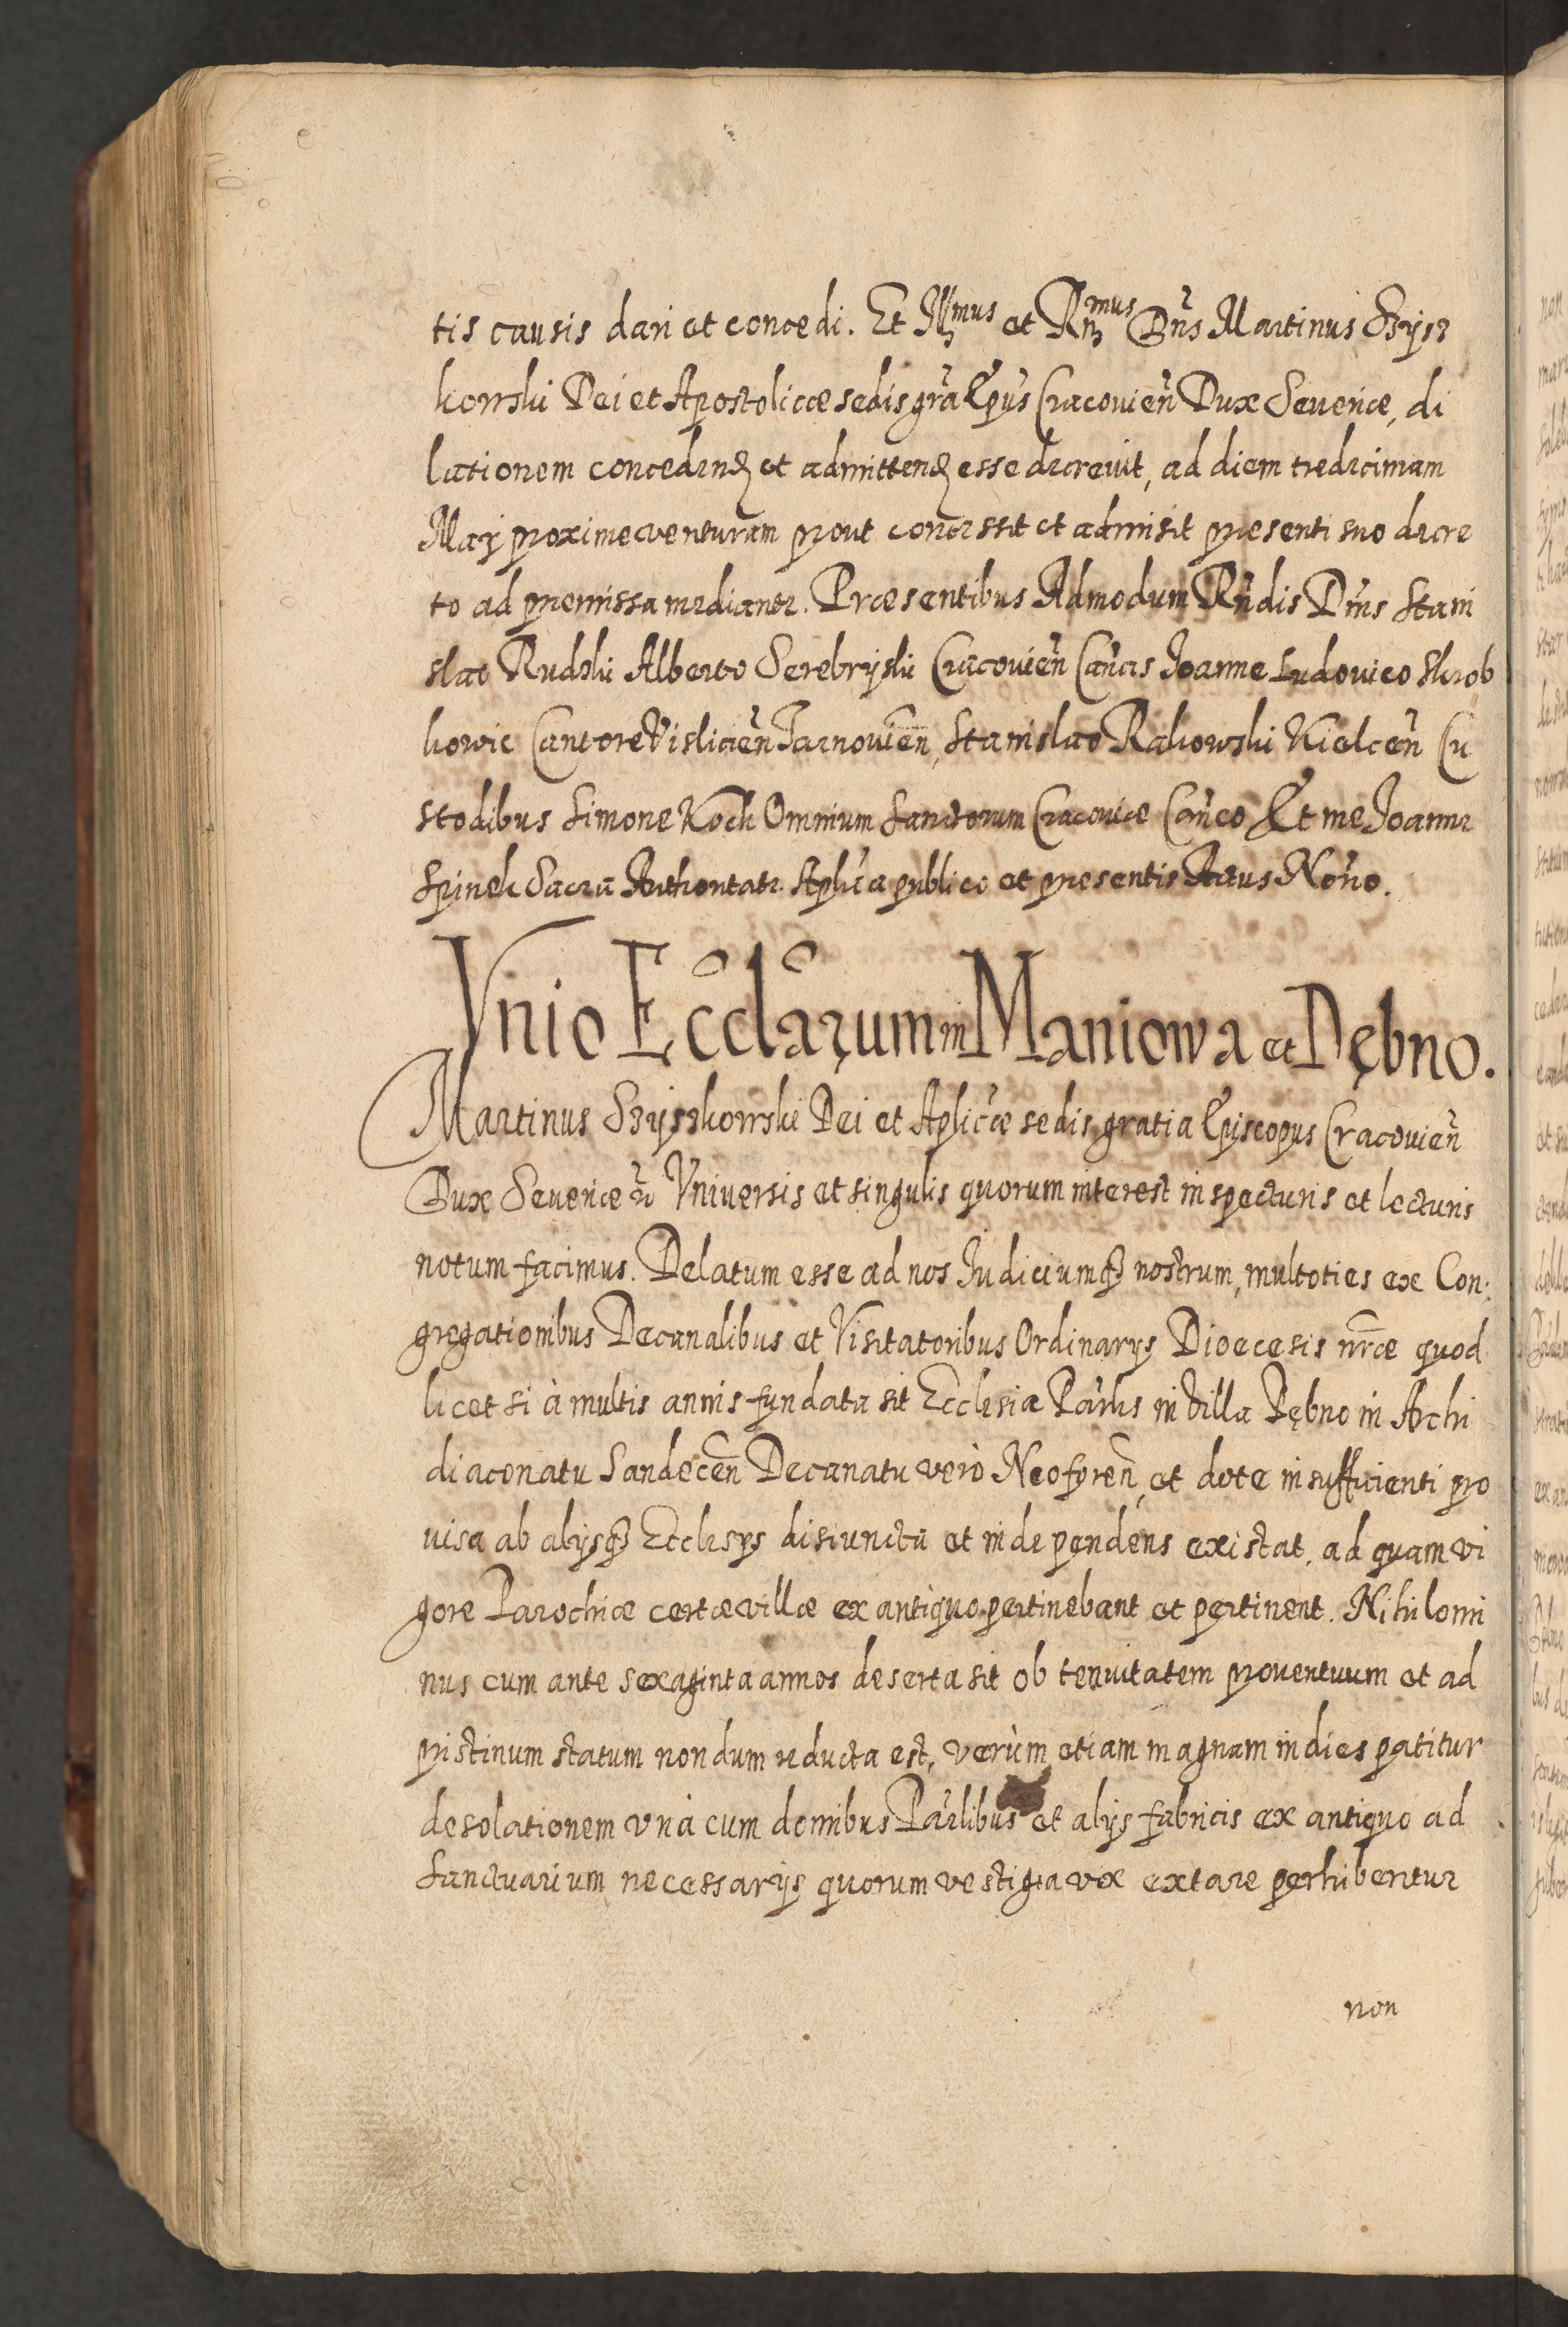 tis causis dari et concedi. Et Illmus et Rmus Dñs Martinus Szysz
kowski Dei et Apostolicæ sedis gr̃a Ep̃us Cracovieñ Dux Seveñæ, di
lationem concedend et admittend esse decrevit, ad diem tredecimam
Maij proxime venturam prout concessit et admisit presenti suo decre
to ad premissa mediante. Præsentibus Admodum Rñdis Dñis Stani
slao Rudski Alberto Serebryski Cracovieñ Cañcis Joanne Ludovico Skrob
kowic Cantore Vislicieñ Tarnovieñ, Stanislao Rakowski Kielceñ Cu
stodibus Simone Koch Omnium Sanctorum Cracoviæ Cañco Et me Joanne
Spinek Sacra Authoritate Aplĩca publico et presentis Actus Nõrio.
Vnio Eccl̃arum in Maniowa et Dębno.
Martinus Szyszkowski Dei et Aplicæ sedis gratia Episcopus Cracovieñ
Dux Severiæ Vniversis et singulis quorum interest inspecturis et lecturis
notum facimus. Delatum esse ad nos Iudiciumq3 nostrum, multoties ex Con:
gregationibus Decanalibus et Visitatoribus Ordinarys Dioecesis nr̃æ quod
licet si à multis annis fundata sit Ecclesia Par̃lis in Villa Dębno in Archi
diaconatu Sandeceñ Decanatu verò Neoforeñ, et dote insufficienti pro
visa ab alijsq3 Ecclesys disiuncta et independens existat, ad quam vi
gore Parochiæ certæ villæ ex antiquo pertinebant et pertinent. Nihilomi
nus cum ante sexaginta annos deserta sit ob tenuitatem proventuum et ad
pristinum statum nondum reducta est, verùm etiam magnam in dies patitur
desolationem unà cum domibus Par̃libus et alijs fabricis ex antiquo ad
Sanctuarium necessarijs quorum vestigia vix extare perhibentur
non